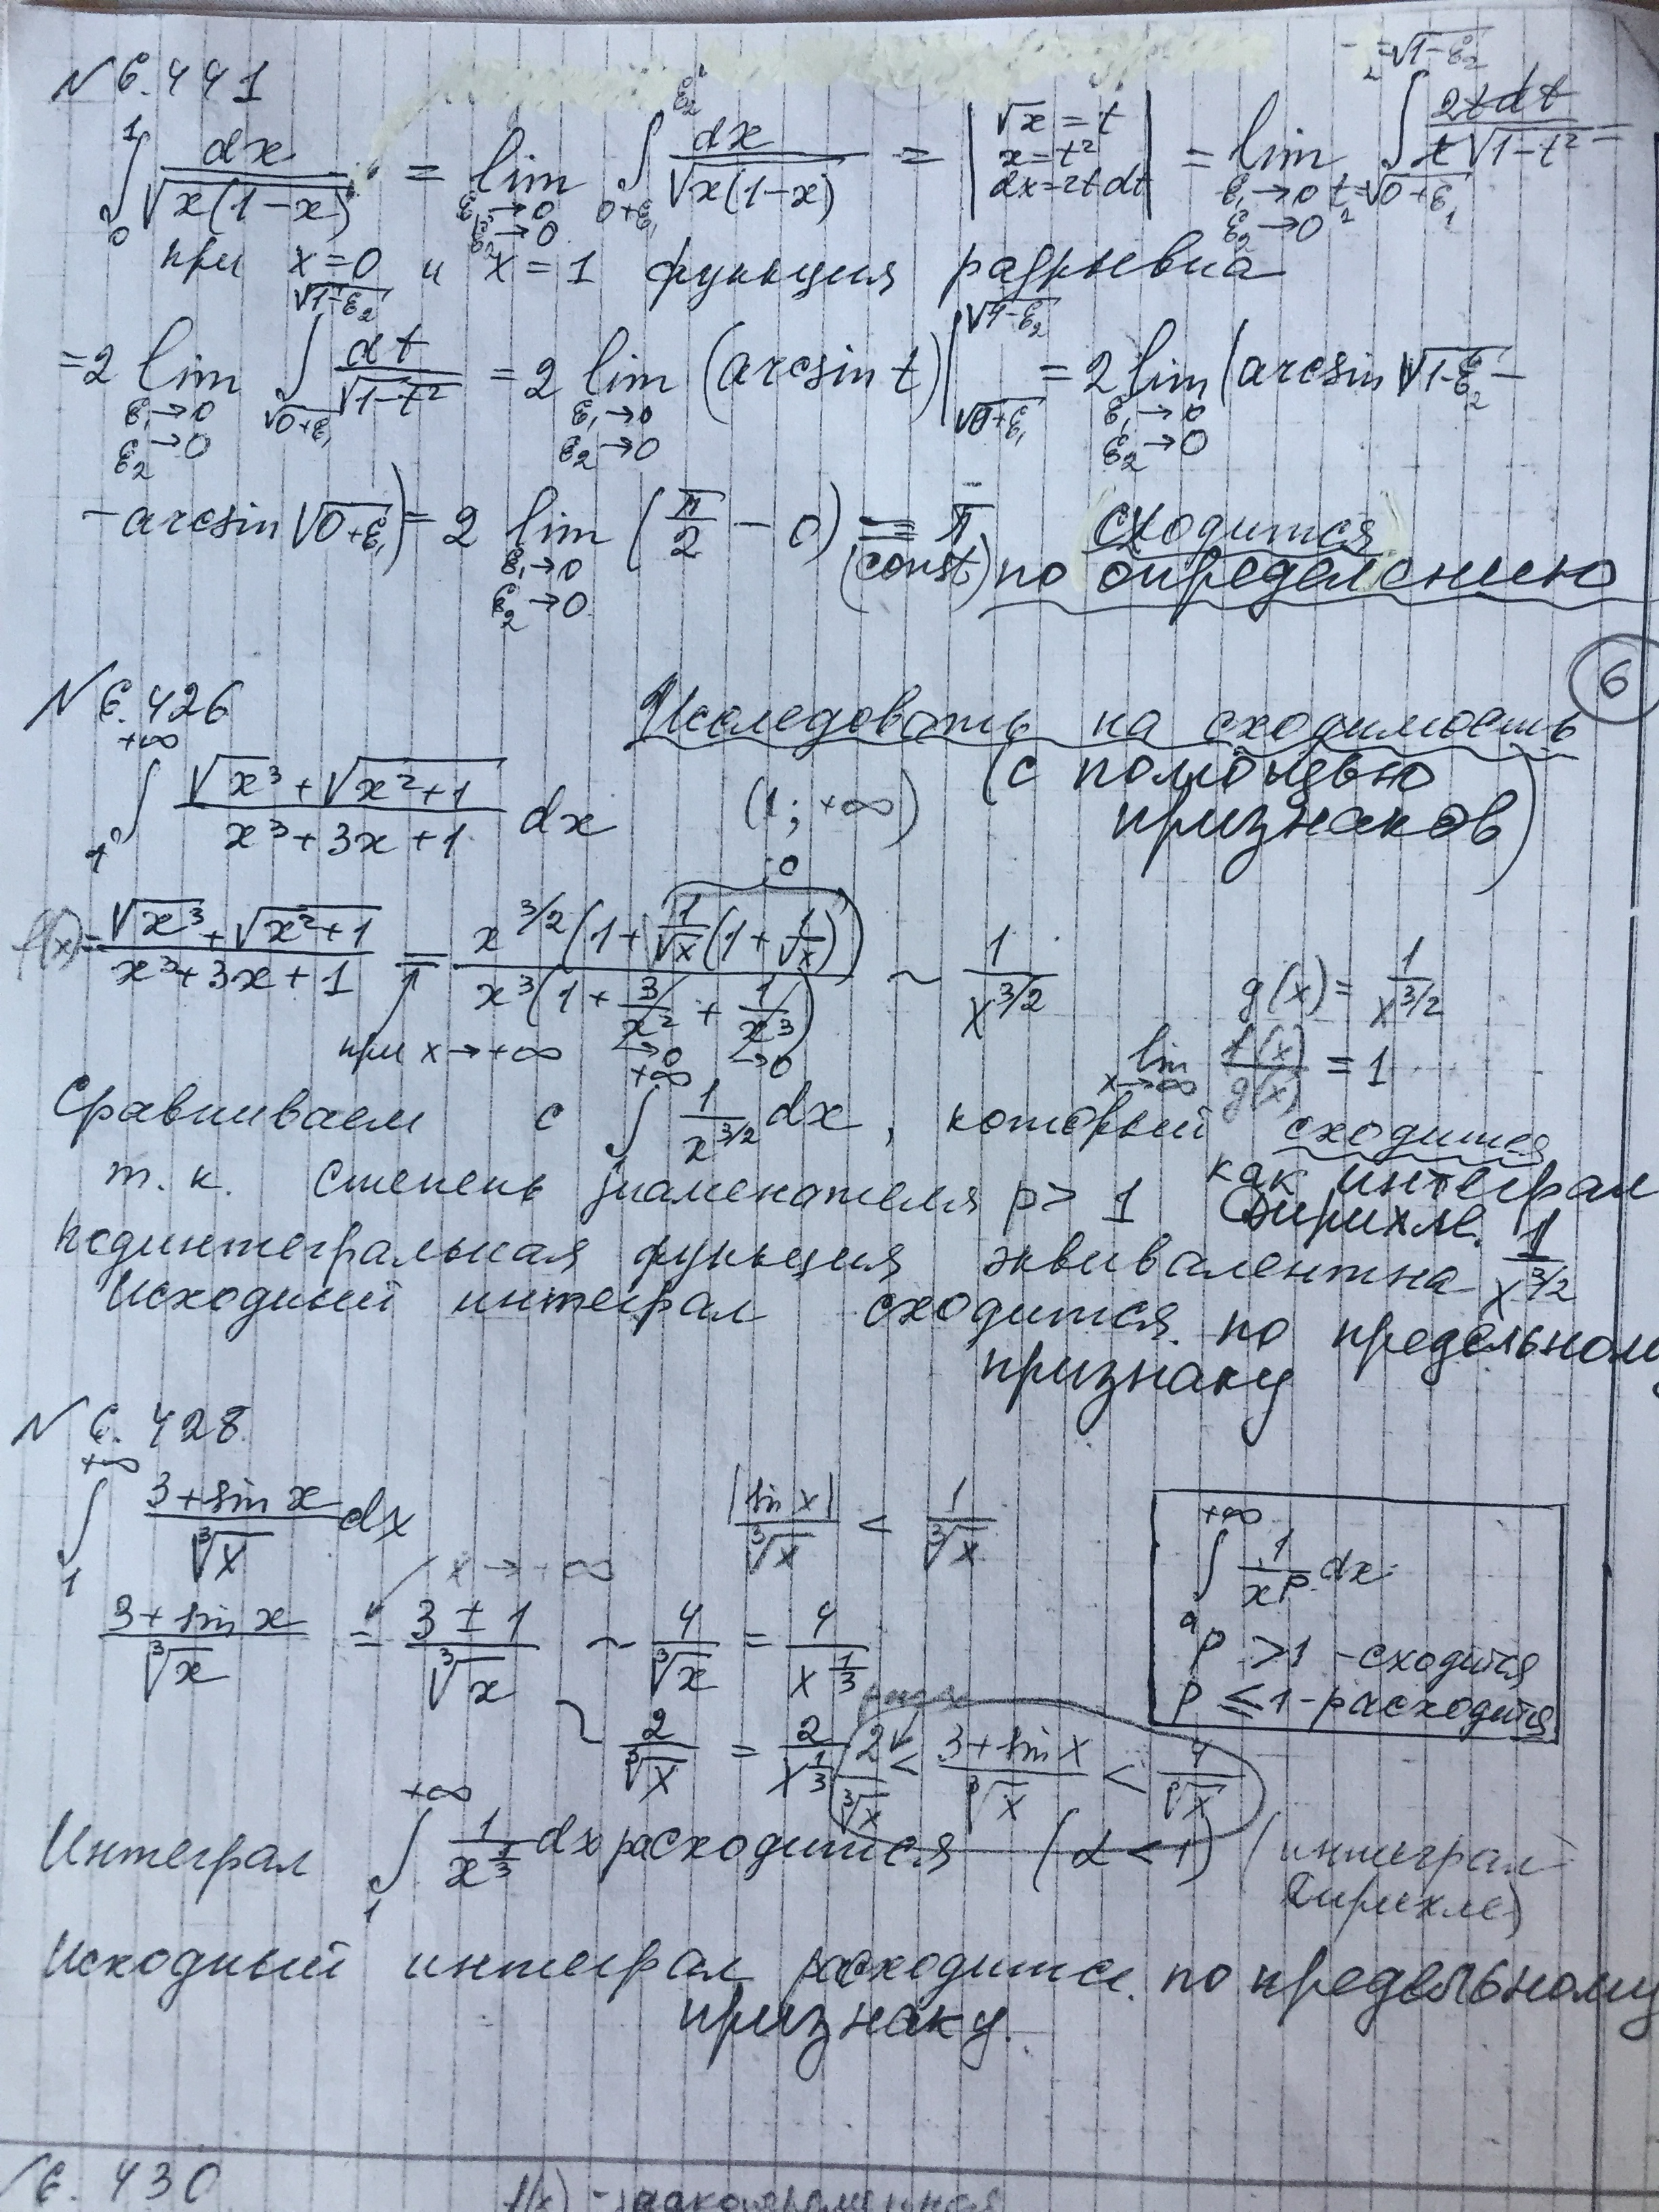 N 6.441
∫₀¹ dx/√(x(1-x)) = lim ε₁→0 ε₂→0 ∫ 0+ε₁ dx/√(x(1-x)) = | √x = t x = t² dx = 2t dt | = lim ε₁→0 ε₂→0 ∫ t₁=√(0+ε₁) t₂=√(1-ε₂) 2t dt/(t√(1-t²)) =
при x=0 и x=1 функция разрывна
= 2 lim ε₁→0 ε₂→0 ∫ √(0+ε₁) √(1-ε₂) dt/√(1-t²) = 2 lim ε₁→0 ε₂→0 (arcsin t)| √(0+ε₁) √(1-ε₂) = 2 lim ε₁→0 ε₂→0 (arcsin √(1-ε₂) -
- arcsin √(0+ε₁)) = 2 lim ε₁→0 ε₂→0 (π/2 - 0) = π (const) сходится
по определению
6
N 6.426 Исследовать на сходимость
(с помощью
признаков)
∫₁^{+∞} (√x³ + √(x²+1))/(x³+3x+1) dx (1; +∞)
f(x) = (√x³ + √(x²+1))/(x³+3x+1) = x^{3/2}(1 + 1/√x (1 + 1/√x))/(x³(1 + 3/x² + 1/x³)) ~ 1/x^{3/2} g(x) = 1/x^{3/2}
при x→+∞ →0 →0 lim x→∞ f(x)/g(x) = 1
Сравниваем с ∫₁^{+∞} 1/x^{3/2} dx, который сходится
т.к. степень знаменателя p > 1 как интеграл
Дирихле.
Подинтегральная функция эквивалентна 1/x^{3/2}
Исходный интеграл сходится. по предельному
признаку
N 6.428
∫₁^{+∞} (3+sin x)/∛x dx |sin x|/∛x < 1/∛x
∫ₐ^{+∞} 1/x^p dx
p > 1 - сходится
p ≤ 1 - расходится
x→+∞
(3+sin x)/∛x = (3±1)/∛x ~ 4/∛x = 4/x^{1/3}
~ 2/∛x = 2/x^{1/3} 2/∛x < (3+sin x)/∛x < 4/∛x
Интеграл ∫₁^{+∞} 1/x^{1/3} dx расходится (α < 1) (интеграл
Дирихле)
Исходный интеграл расходится. по предельному
признаку.
6.430
f(x) - знакопеременная